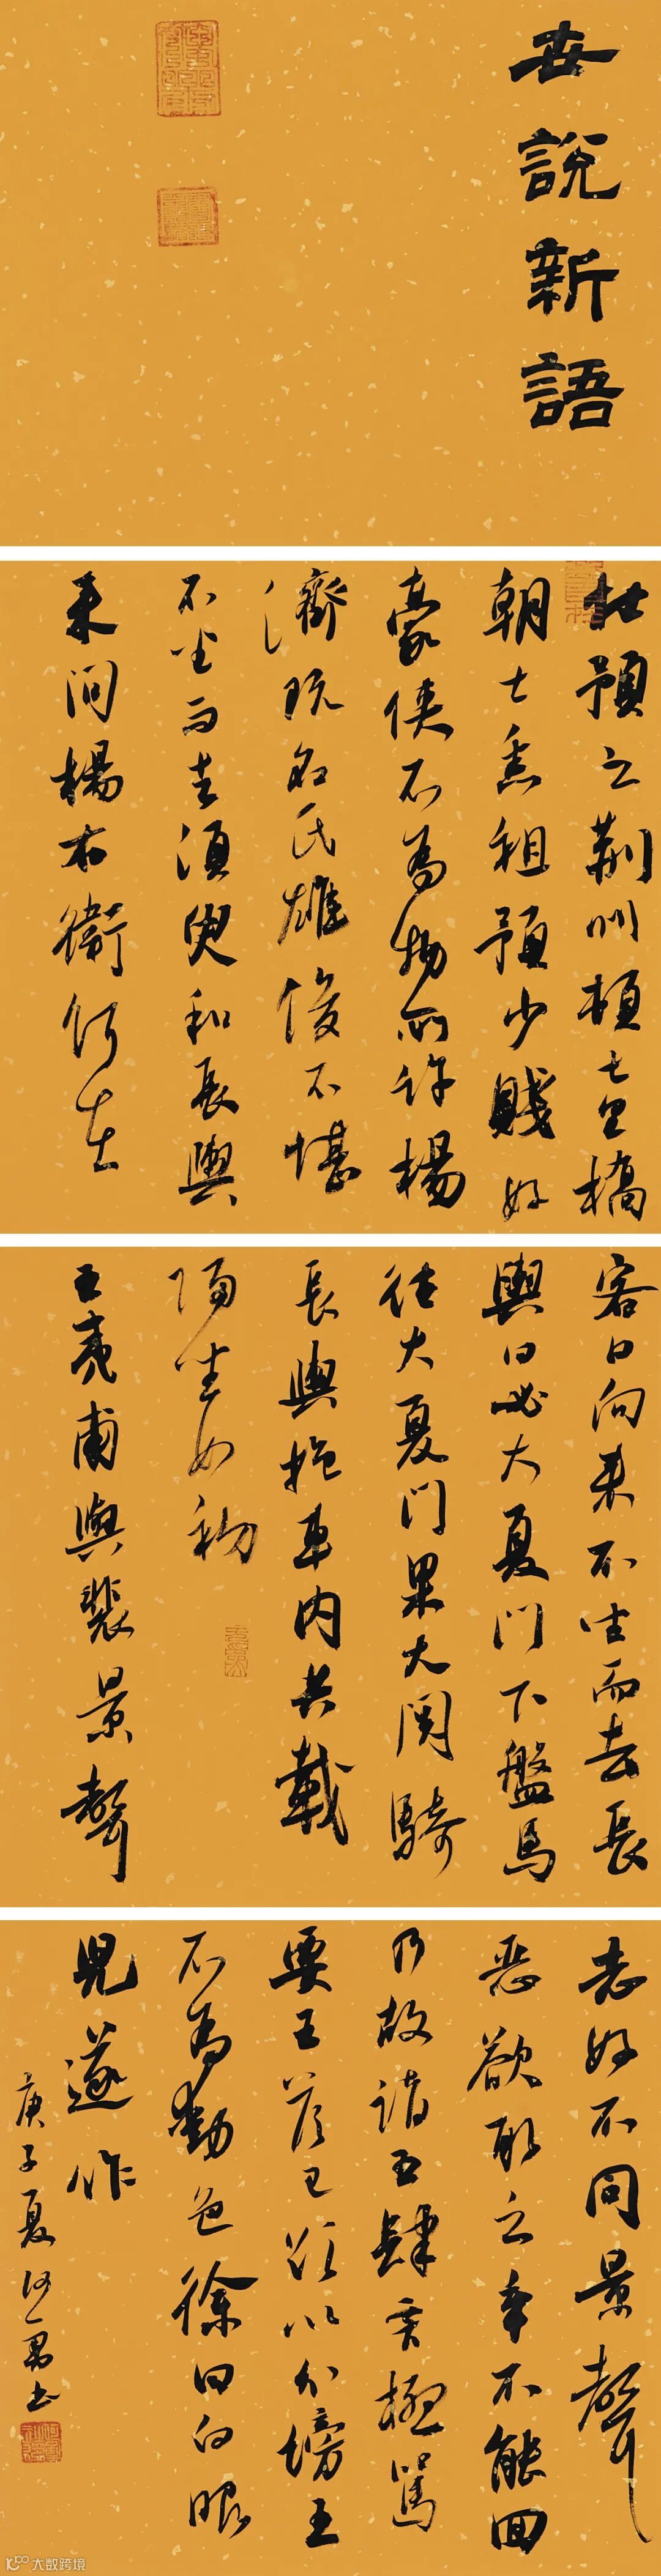 世說新語
杜預之荆州頓七里橋
朝士悉祖預少賤好
豪俠不為物所許楊
濟既名氏雄俊不堪
不坐而去須臾和長輿
来問楊右衛何在
客曰向来不坐而去長
輿曰必大夏門下盤馬
往大夏門果大閱騎
長輿抱車内共載
歸坐如初
王夷甫與裴景聲
志好不同景聲
惡欲取之卒不能回
乃故詣王肆言極罵
要王答己欲以分謗王
不為動色徐曰白眼
兒遂作
庚子夏何一男書
大数跨境